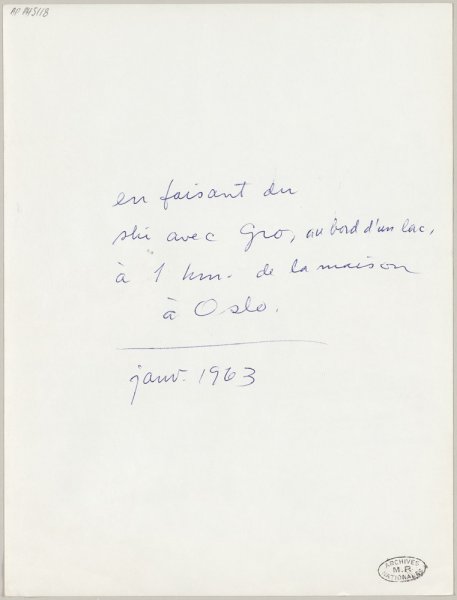 AP AH5118
en faisant du
ski avec Gro, au bord d'un lac,
à 1 km. de la maison
à Oslo.
janv. 1963
ARCHIVES
M.R.
NATIONALES